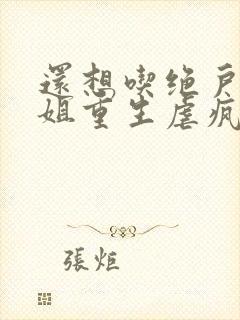 還想喫绝户
姐重生虐疯
張炬